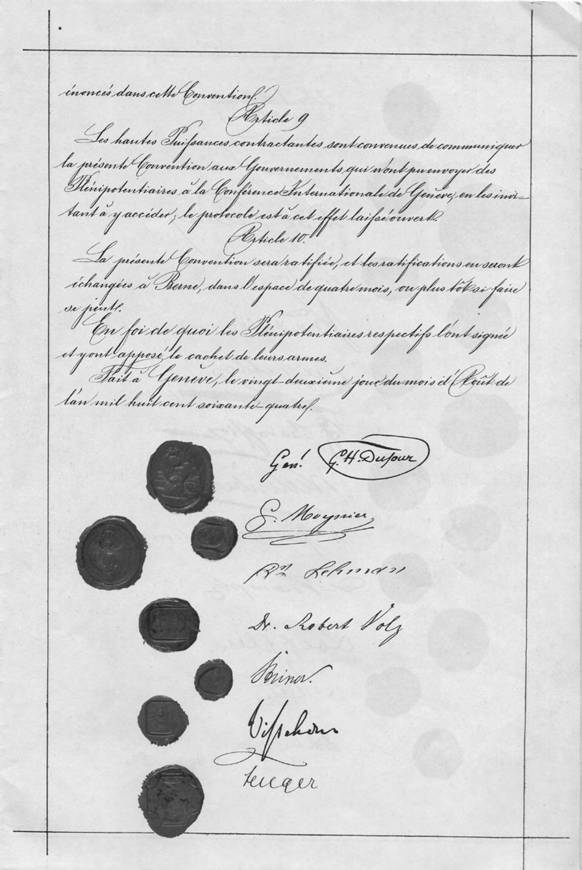 énoncés dans cette Convention.
Article 9
Les hautes Puissances contractantes sont convenues de communiquer
la présente Convention aux Gouvernements qui n'ont pu envoyer des
Plénipotentiaires à la Conférence Internationale de Genève, en les invi-
tant à y accéder; le protocole est à cet effet laissé ouvert.
Article 10.
La présente Convention sera ratifiée, et les ratifications en seront
échangées à Berne, dans l'espace de quatre mois, ou plus tôt si faire
se peut.
En foi de quoi les Plénipotentiaires respectifs l'ont signée
et y ont apposé le cachet de leurs armes.
Fait à Genève, le vingt deuxième jour du mois d'Août de
l'an mil huit cent soixante-quatre.
Gén. G. H. Dufour
G. Moynier
Lehmann
Dr. Robert Volz
Steiner.
Visschers
Fenger